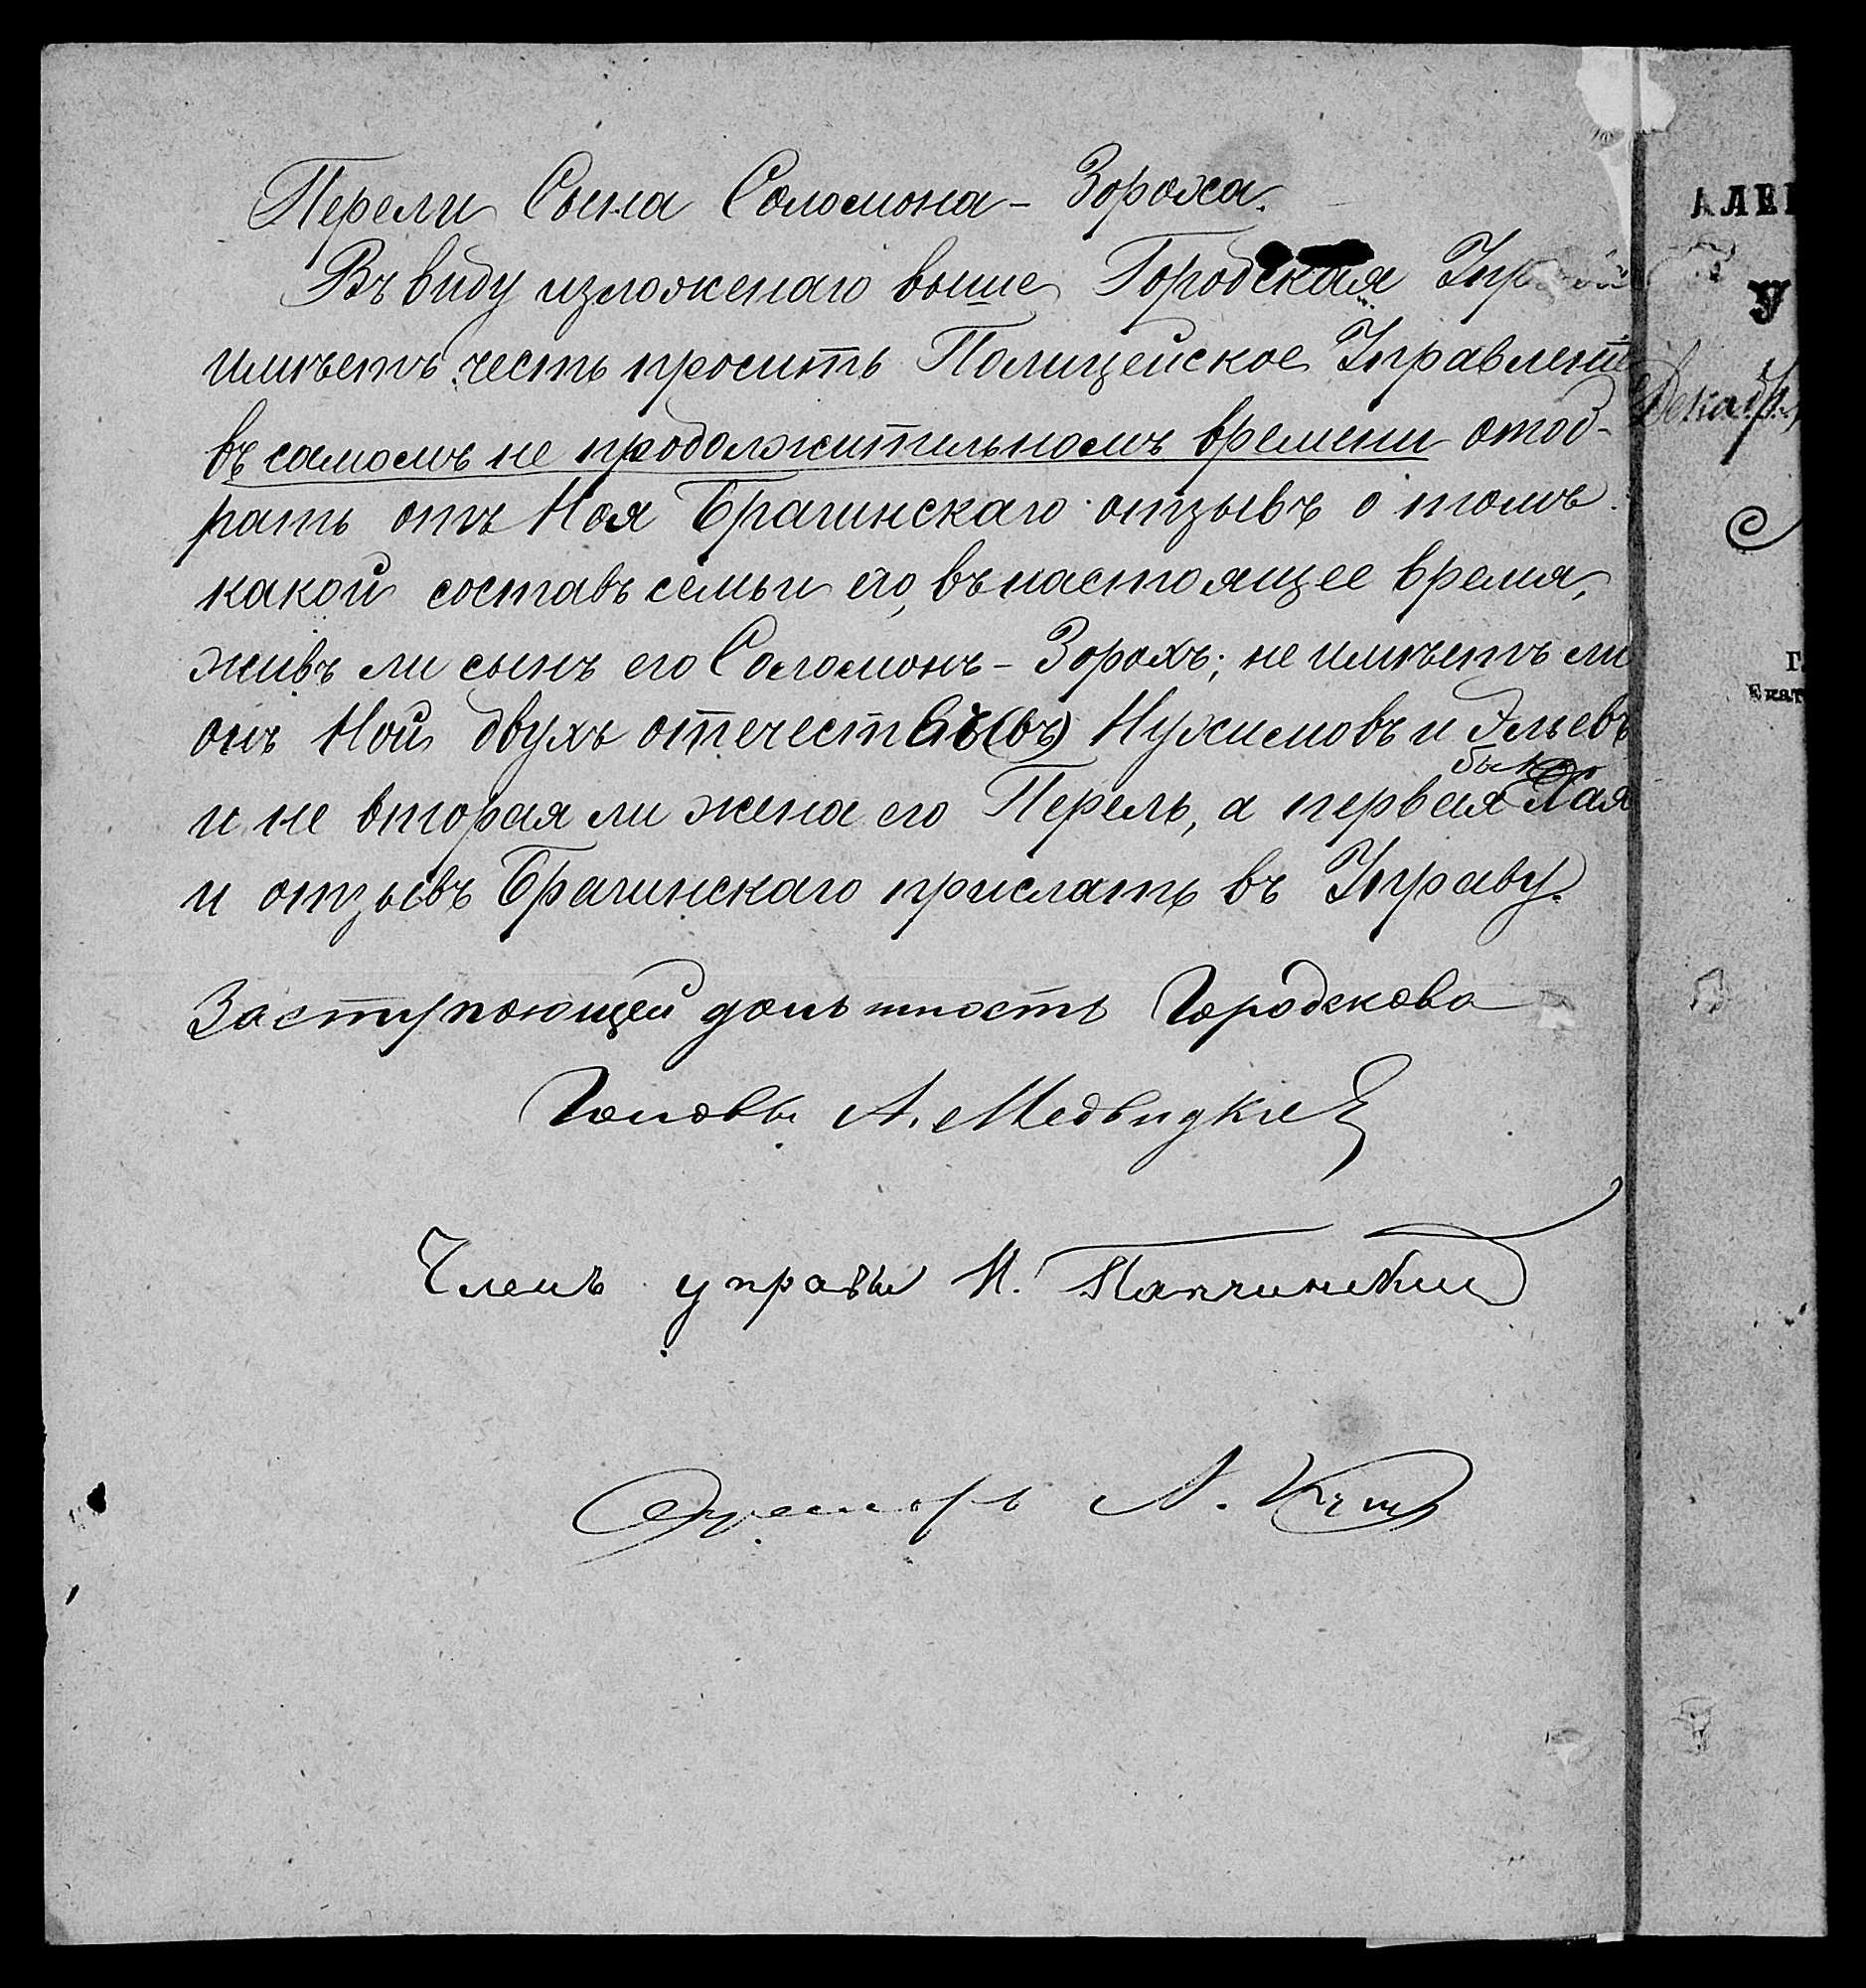 Перели сына Соломона-Зороха.
Въ виду изложенаго выше Городская
имѣетъ честь просить Полицейское Управленіе
въ самомъ не продолжительномъ времени отоб-
рать отъ Ноя Брагинскаго отзывъ о томъ
какой составъ семьи его, въ настоящее время,
живъ ли сынъ его Соломонъ-Зорохъ; не имѣетъ ли
онъ Ной двухъ отечествъ (въ) Нухимовъ и Эльевъ
и не вторая ли жена его Перель, а первая была Хая
и отзывъ Брагинскаго прислать въ Управу.
Заступающей должность Городскова
Головы А.
Членъ управы И.
Секретарь А.
АЛЕ
У
Декабря
Г
Екат